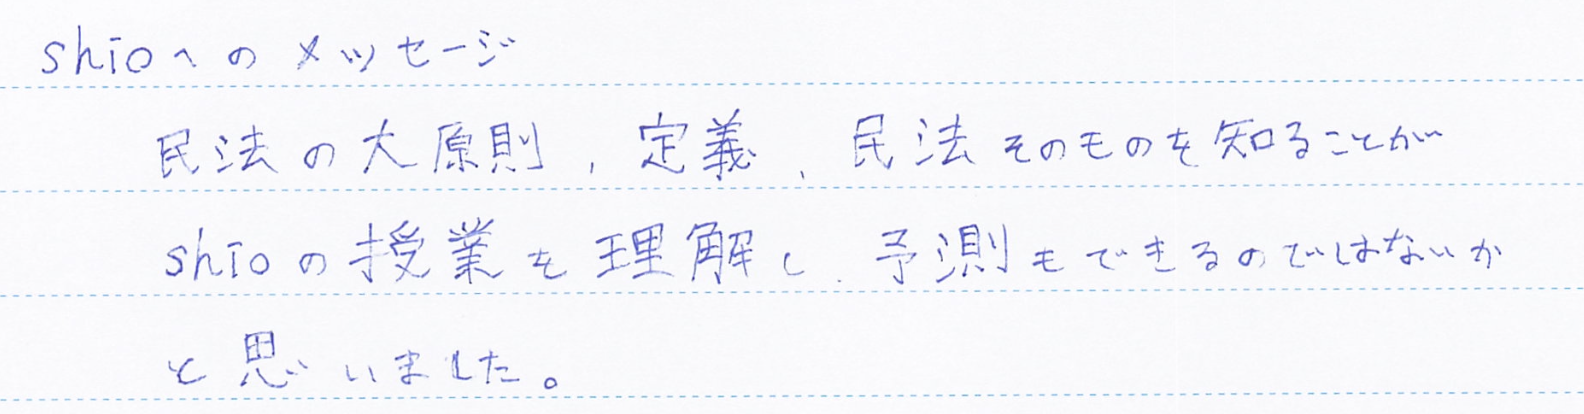 shioへのメッセージ
民法の大原則, 定義、民法そのものを知ることが
shioの授業を理解し、予測もできるのではないか
と思いました。